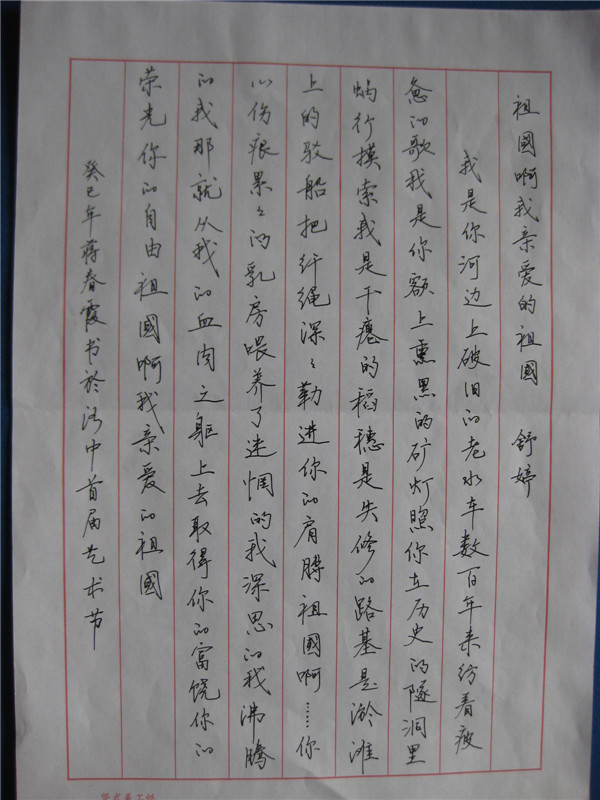 祖國啊我亲爱的祖國 舒婷
我是你河边上破旧的老水车数百年来纺着疲
惫的歌我是你额上熏黑的矿灯照你在历史的隧洞里
蜗行摸索我是干瘪的稻穗是失修的路基是淤滩
上的驳船把纤绳深々勒进你的肩膊祖國啊……你
以伤痕累々的乳房喂养了迷惘的我深思的我沸腾
的我那就从我的血肉之躯上去取得你的富饶你的
荣光你的自由祖國啊我亲爱的祖國
癸巳年蒋春霞书於 中首届艺术节